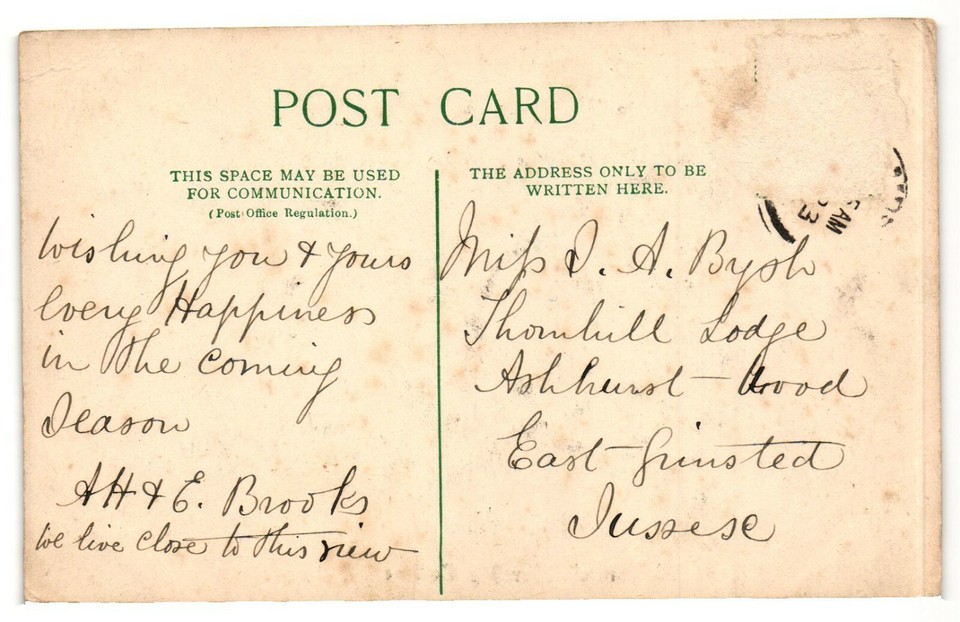 POST CARD
THIS SPACE MAY BE USED
FOR COMMUNICATION.
(Post Office Regulation.)
THE ADDRESS ONLY TO BE
WRITTEN HERE.
Wishing you & yours
every Happiness
in the coming
Season
AH & E. Brooks
We live close to this view
Miss I. A. Bysh
Thornhill Lodge
Ashhurst-Wood
East Grinsted
Sussex
5AM
23